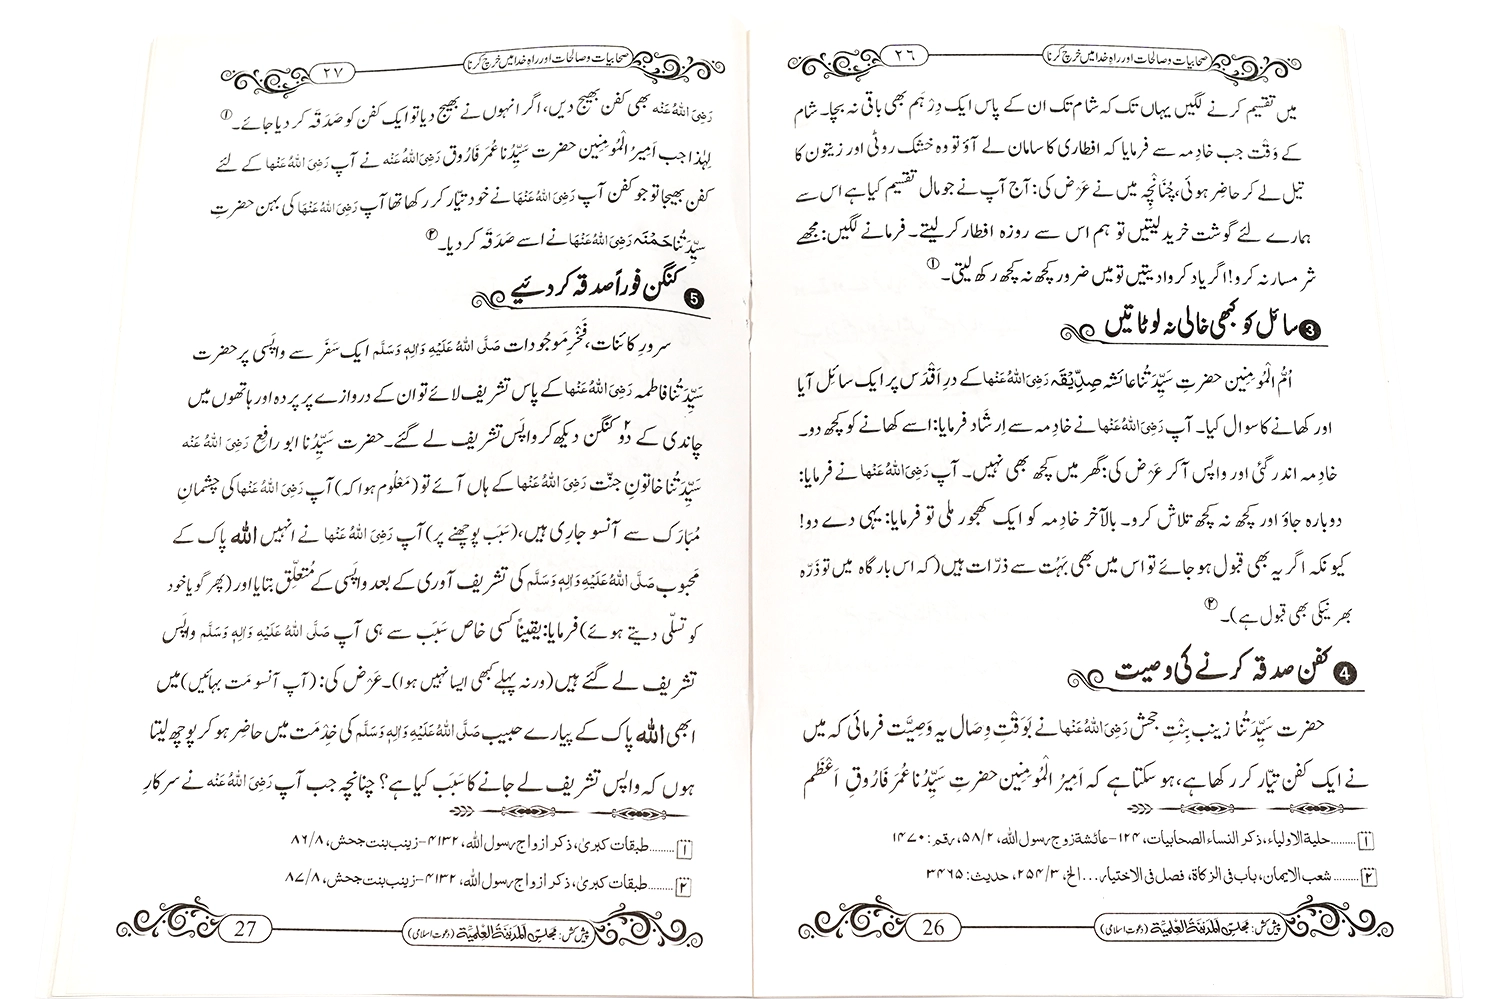 صحابیات و صالحات اور راہِ خدا میں خرچ کرنا
٢٦
میں تقسیم کرنے لگیں یہاں تک کہ شام تک ان کے پاس ایک دِرْہَم بھی باقی نہ بچا۔ شام
کے وَقْت جب خادِمہ سے فرمایا کہ افطاری کا سامان لے آؤ تو وہ خشک روٹی اور زیتون کا
تیل لے کر حاضِر ہوئی، چُنَانْچِہ میں نے عَرْض کی: آج آپ نے جو مال تقسیم کیا ہے اس سے
ہمارے لئے گوشت خرید لیتیں تو ہم اس سے روزہ افطار کر لیتے۔ فرمانے لگیں: مجھے
شرمسار نہ کرو! اگر یاد کروا دیتیں تو میں ضرور کچھ نہ کچھ رکھ لیتی۔ ①
3 سائل کو کبھی خالی نہ لوٹاتیں
اُمُّ الْمُومِنِین حضرتِ سَیِّدَتُنا عائشہ صِدِّیْقَہ رَضِیَ اللہُ عَنْہا کے درِ اَقْدَس پر ایک سائِل آیا
اور کھانے کا سوال کیا۔ آپ رَضِیَ اللہُ عَنْہا نے خادِمہ سے اِرشَاد فرمایا: اسے کھانے کو کچھ دو۔
خادِمہ اندر گئی اور واپس آکر عَرْض کی: گھر میں کچھ بھی نہیں۔ آپ رَضِیَ اللہُ عَنْہا نے فرمایا:
دوبارہ جاؤ اور کچھ نہ کچھ تلاش کرو۔ بالآخر خادِمہ کو ایک کھجور ملی تو فرمایا: یہی دے دو!
کیونکہ اگر یہ بھی قبول ہو جائے تو اس میں بھی بَہُت سے ذرّات ہیں (کہ اس بارگاہ میں تو ذَرّہ
بھر نیکی بھی قبول ہے)۔ ②
4 کفن صدقہ کرنے کی وصیت
حضرت سَیِّدَتُنا زینب بِنْتِ جحش رَضِیَ اللہُ عَنْہا نے بَوَقْتِ وِصال یہ وَصِیَّت فرمائی کہ میں
نے ایک کفن تیّار کر رکھا ہے، ہو سکتا ہے کہ اَمِیرُ الْمُومِنِین حضرتِ سَیِّدُنا عُمَر فَارُوقِ اَعْظَم
١ ........ حلیة الاولیاء، ذکر النساء الصحابیات، ١٢٤- عائشة زوج رسول اللہ، ٥٨/٢، رقم: ١٤٧٠
٢ ........ شعب الایمان، باب فی الزکاة، فصل فی الاختیار... الخ، ٢٥٤/٣، حدیث: ٣٤٦٥
پیش کش: مَجلس اَلْمَدِیْنَةُ الْعِلْمِیَّة (دعوتِ اسلامی)
26
صحابیات و صالحات اور راہِ خدا میں خرچ کرنا
٢٧
رَضِیَ اللہُ عَنْہ بھی کفن بھیج دیں، اگر انہوں نے بھیج دیا تو ایک کفن کو صَدَقہ کر دیا جائے۔ ①
لہٰذا جب اَمِیرُ الْمُومِنِین حضرت سَیِّدُنا عُمَر فَارُوق رَضِیَ اللہُ عَنْہ نے آپ رَضِیَ اللہُ عَنْہا کے لئے
کفن بھیجا تو جو کفن آپ رَضِیَ اللہُ عَنْہا نے خود تیّار کر رکھا تھا آپ رَضِیَ اللہُ عَنْہَا کی بہن حضرتِ
سیِّدَتُنا حَمْنَہ رَضِیَ اللہُ عَنْہَا نے اسے صَدَقہ کر دیا۔ ②
5 کنگن فوراً صدقہ کر دئیے
سرورِ کائنات، فَخْرِ مَوجُودات صَلَّی اللہُ عَلَیْہِ وَاٰلِہٖ وَسَلَّم ایک سَفَر سے واپسی پر حضرت
سَیِّدَتُنا فاطمہ رَضِیَ اللہُ عَنْہا کے پاس تشریف لائے تو ان کے دروازے پر پردہ اور ہاتھوں میں
چاندی کے دو٢ کنگن دیکھ کر واپس تشریف لے گئے۔ حضرت سَیِّدُنا ابو رافِع رَضِیَ اللہُ عَنْہ
سَیِّدَتُنا خاتونِ جنّت رَضِیَ اللہُ عَنْہا کے ہاں آئے تو (مَعْلُوم ہوا کہ) آپ رَضِیَ اللہُ عَنْہا کی چشمانِ
مُبَارَک سے آنسو جارِی ہیں، (سَبَب پوچھنے پر) آپ رَضِیَ اللہُ عَنْہا نے انہیں اللہ پاک کے
مَحْبوب صَلَّی اللہُ عَلَیْہِ وَاٰلِہٖ وَسَلَّم کی تشریف آوری کے بعد واپَسی کے مُتعلِّق بتایا اور (پھر گویا خود
کو تسلّی دیتے ہوئے) فرمایا: یقیناً کسی خاص سَبَب سے ہی آپ صَلَّی اللہُ عَلَیْہِ وَاٰلِہٖ وَسَلَّم واپَس
تشریف لے گئے ہیں (ورنہ پہلے کبھی ایسا نہیں ہوا)۔ عَرْض کی: (آپ آنسو مَت بہائیں) میں
ابھی اللہ پاک کے پیارے حبیب صَلَّی اللہُ عَلَیْہِ وَاٰلِہٖ وَسَلَّم کی خِدْمَت میں حاضِر ہو کر پوچھ لیتا
ہوں کہ واپَس تشریف لے جانے کا سَبَب کیا ہے؟ چنانچہ جب آپ رَضِیَ اللہُ عَنْہ نے سرکارِ
١ ........ طبقات کبریٰ، ذکر ازواج رسول اللہ، ٤١٣٢- زینب بنت جحش، ٨٦/٨
٢ ........ طبقات کبریٰ، ذکر ازواج رسول اللہ، ٤١٣٢- زینب بنت جحش، ٨٧/٨
پیش کش: مَجلس اَلْمَدِیْنَةُ الْعِلْمِیَّة (دعوتِ اسلامی)
27